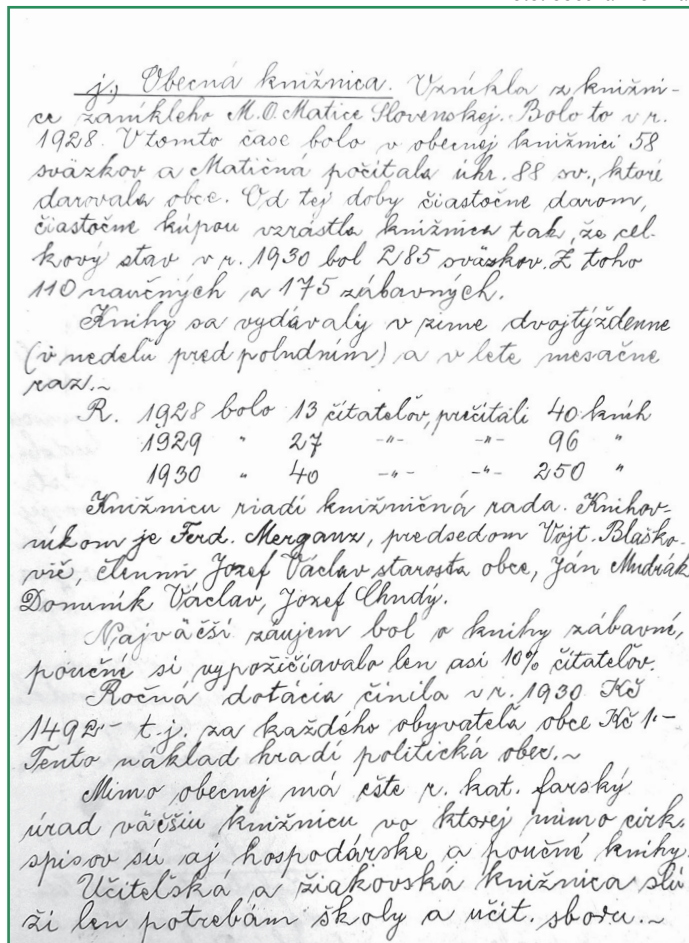 j., Obecná knižnica. Vznikla z knižni-
ce zaniklého M.O. Matice Slovenskej. Bolo to v r.
1928. V tomto čase bolo v obecnej knižnici 58
sväzkov a Matičná počítala úhr. 88 sv., ktoré
darovala obce. Od tej doby čiastočne darom,
čiastočne kúpou vzrástla knižnica tak, že cel-
kový stav v r. 1930 bol 285 sväzkov. Z toho
110 naučných a 175 zábavných.
Knihy sa vydávaly v zime dvojtýždenne
(v nedeľu pred poludním) a v lete mesačne
raz.~
R. 1928 bolo 13 čitateľov, prečítali 40 kníh
1929 " 27 -"- -"- 96 "
1930 " 40 -"- -"- 250 "
Knižnicu riadi knižničná rada. Knihov-
níkom je Ferd. Merganz, predsedom Vojt. Blaško-
vič, členmi Jozef Václav starosta obce, Ján Mudrák
Dominik Václav, Jozef Chudý.
Najväčší záujem bol o knihy zábavní,
poučné si vypožičiavalo len asi 10% čitateľov.
Ročná dotácia činila v r. 1930 Kč
1492·- t.j. za každého obyvateľa obce Kč 1·-
Tento náklad hradí politická obec.~
Mimo obecnej má ešte r. kat. farský
úrad väčšiu knižnicu vo ktorej mimo cirk.
spisov sú aj hospodárske a poučné knihy.
Učiteľská a žiakovská knižnica slú
ži len potrebám školy a učit. sboru.~